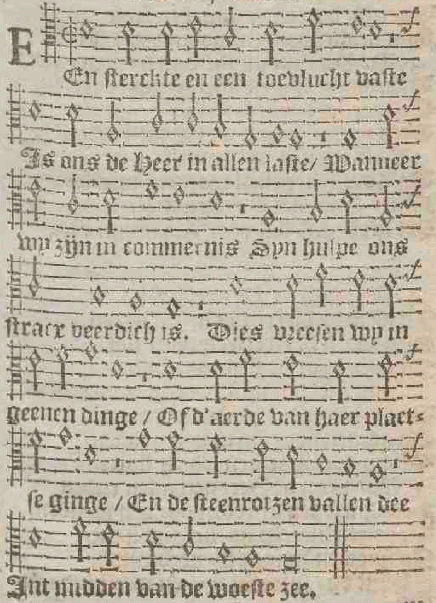 EEn sterckte en een toevlucht vaste
Is ons de Heer in allen laste/ Wanneer
wy zijn in commernis Syn hulpe ons
stracx veerdich is. Dies vreesen wy in
geenen dinge / Of d'aerde van haer plaet-
se ginge / En de steenrotzen vallen dee
Int midden van de woeste zee.